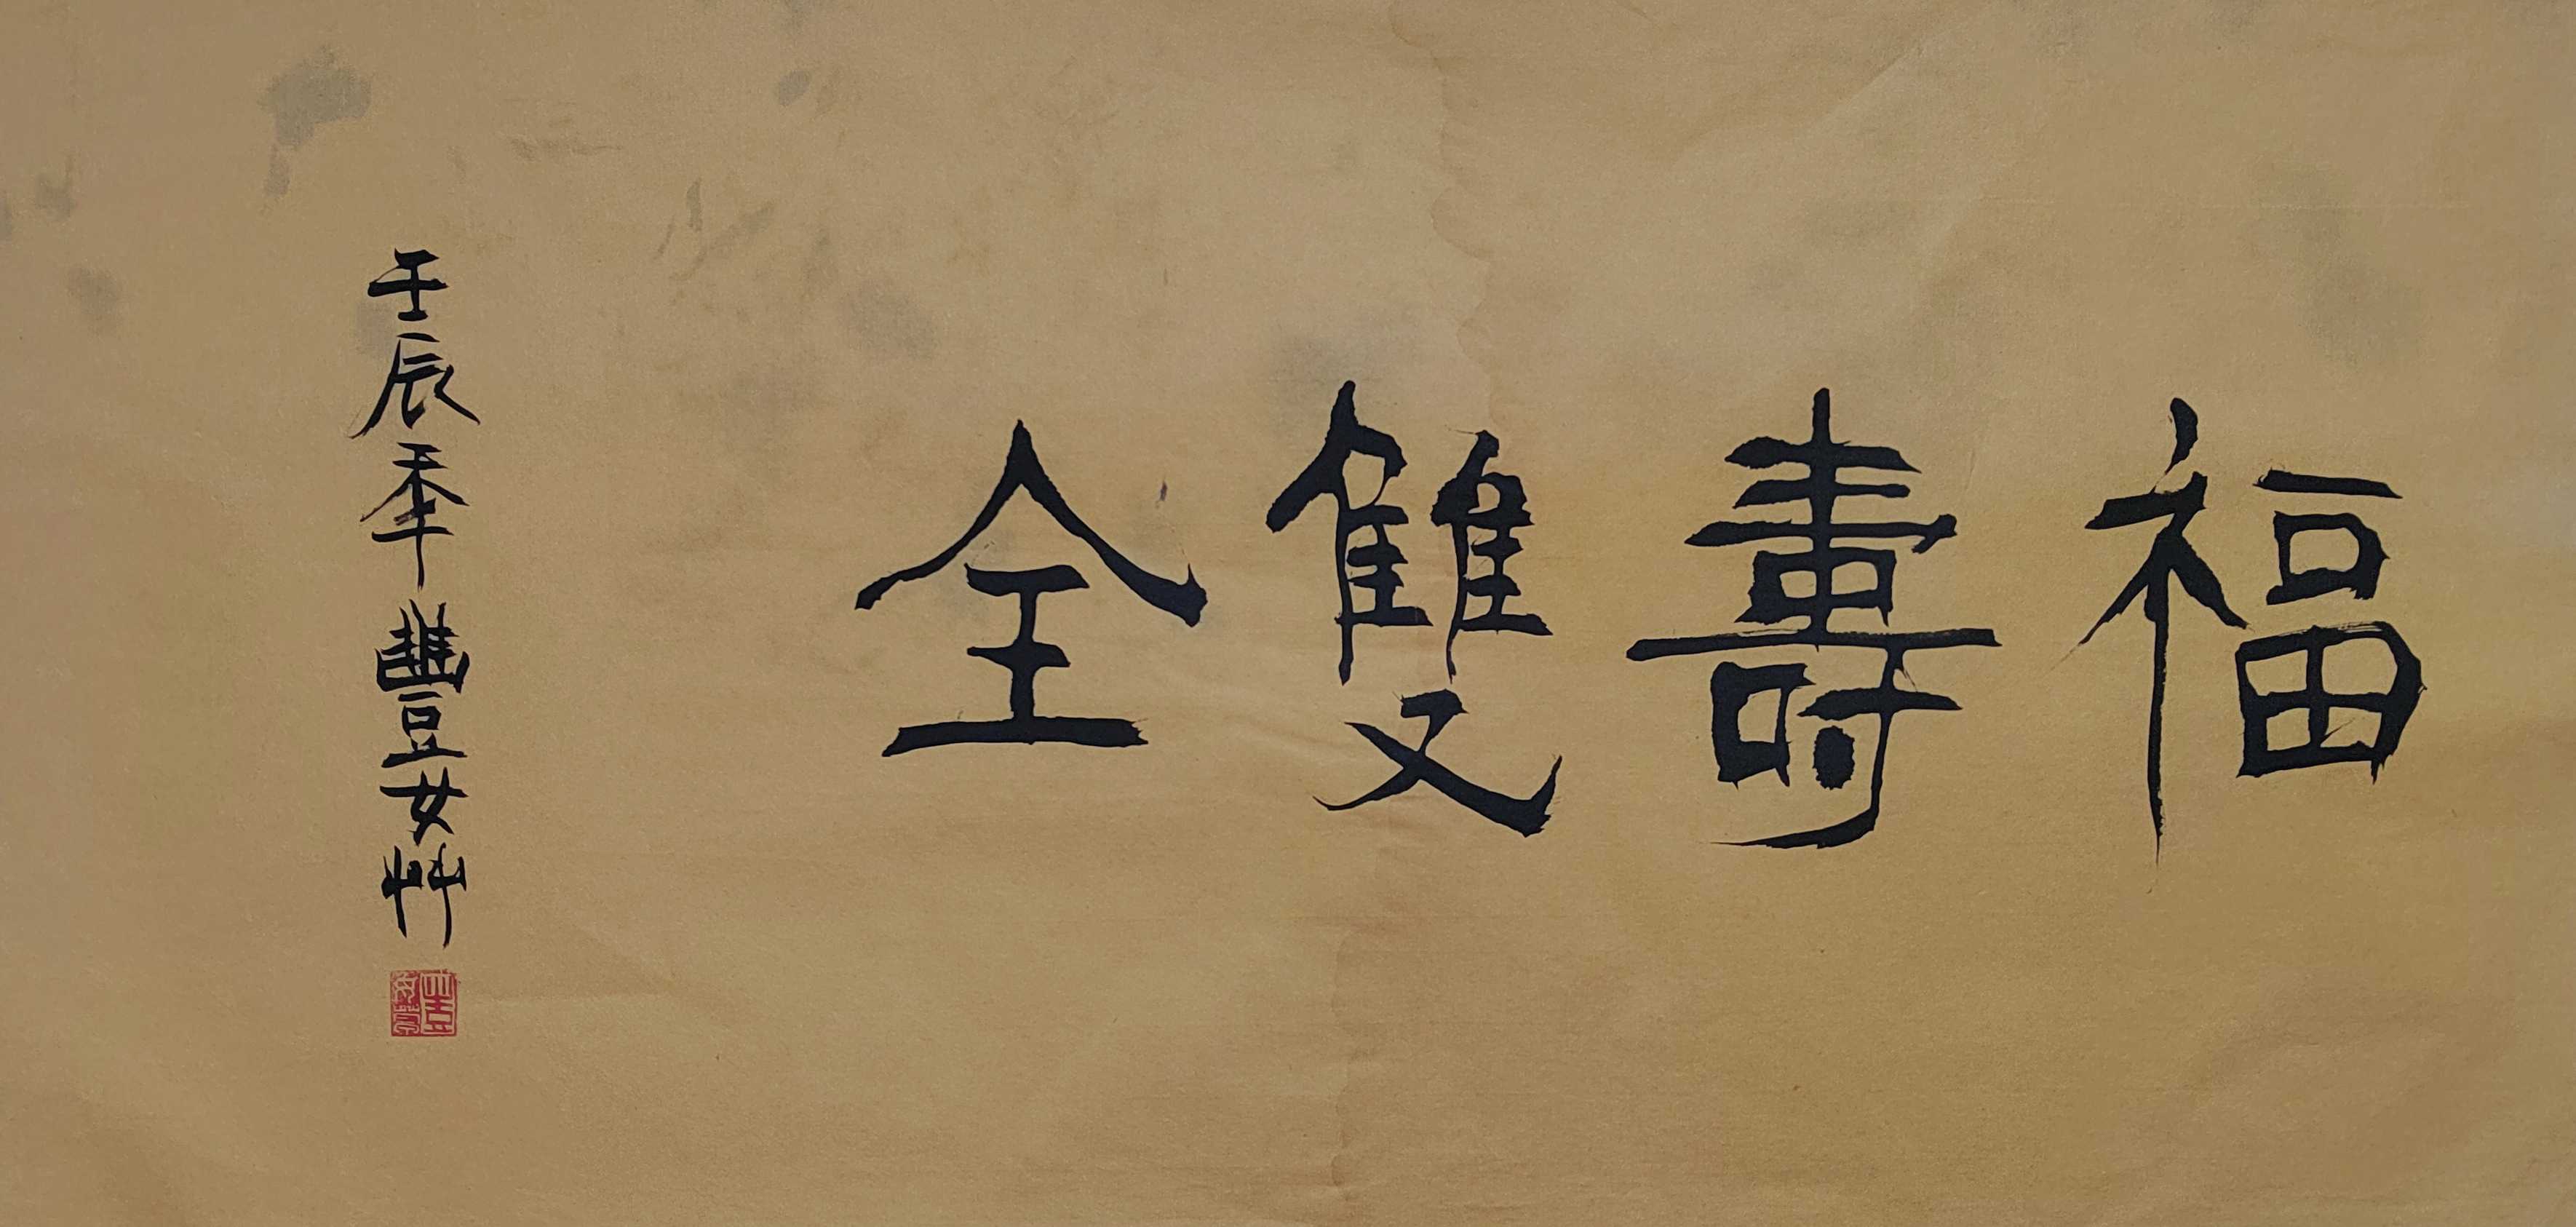 福壽雙全
壬辰季豐女艸